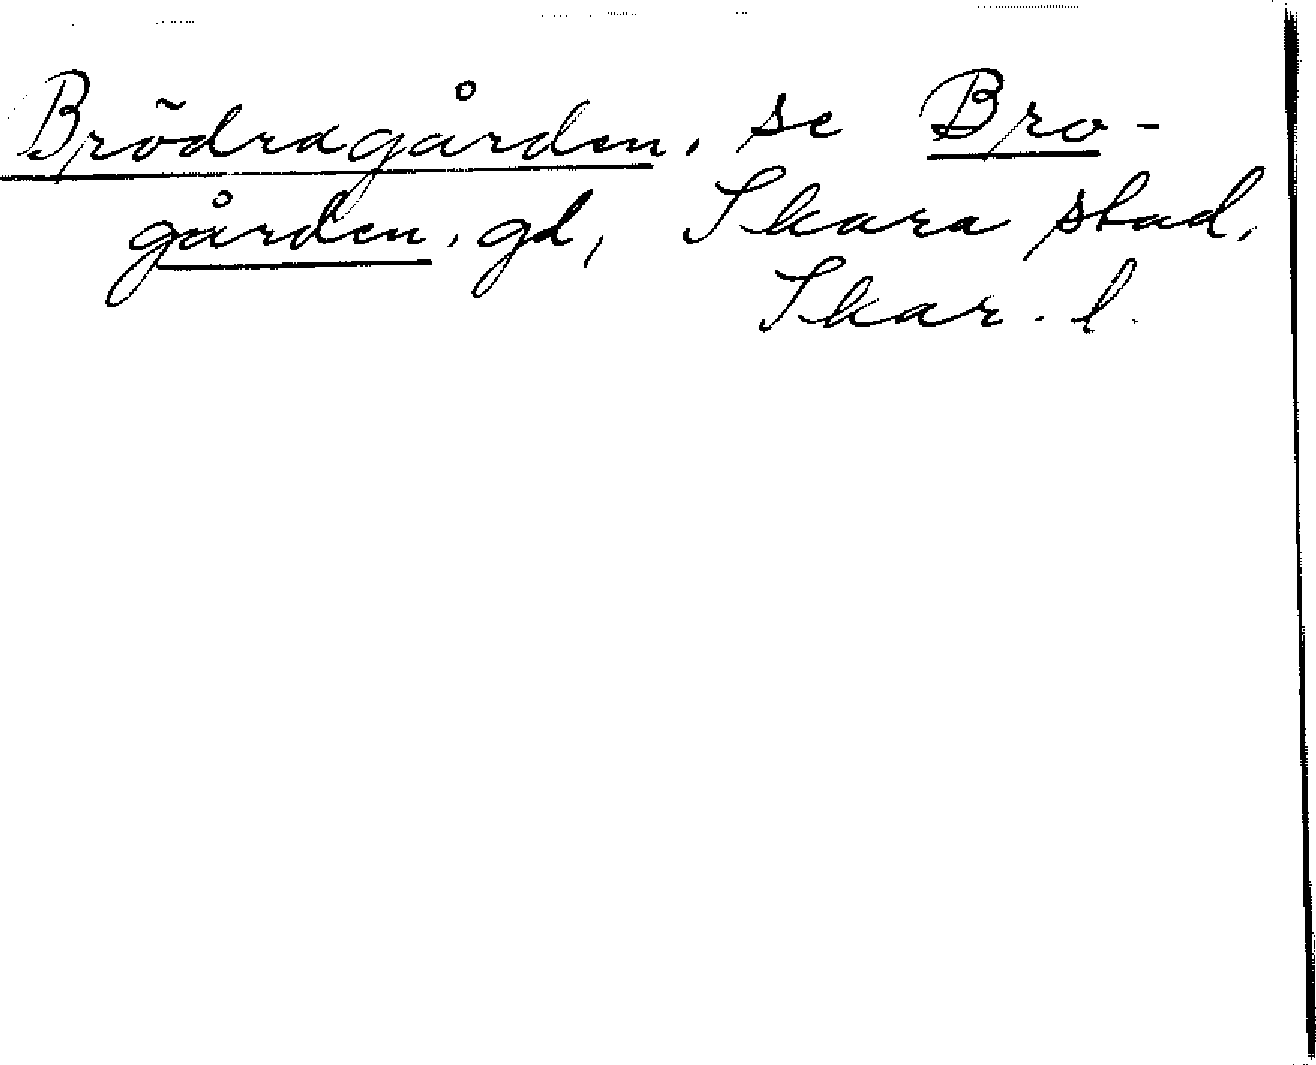 Brödragården, se Bro-
gården, gd, Skara stad,
Skar. l.